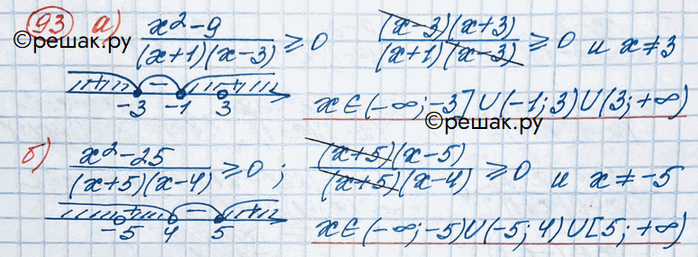 93 а) x²-9 / (x+1)(x-3) ≥ 0 (x-3)(x+3) / (x+1)(x-3) ≥ 0 и x≠3
©решак.ру
+ - +
-3 -1 3
x∈(-∞;-3]∪(-1;3)∪(3;+∞)
©решак.ру
б) x²-25 / (x+5)(x-4) ≥ 0; (x+5)(x-5) / (x+5)(x-4) ≥ 0 и x≠-5
+ - +
-5 4 5
x∈(-∞;-5)∪(-5;4)∪[5;+∞)